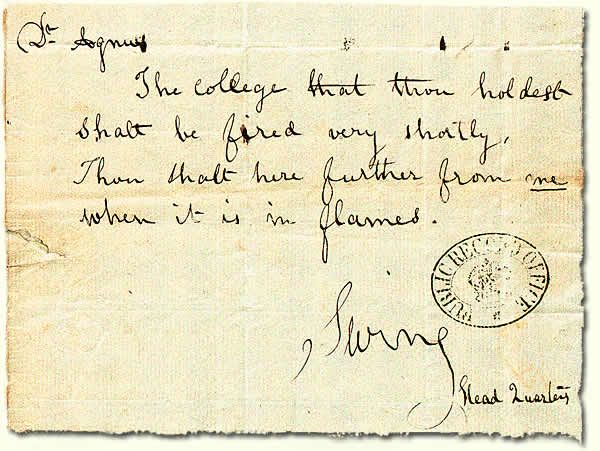 The college that thou holdest
shalt be fired very shortly,
Thou shalt here further from me
when it is in flames.
PUBLIC RECORD OFFICE
Swing
Head Quarters